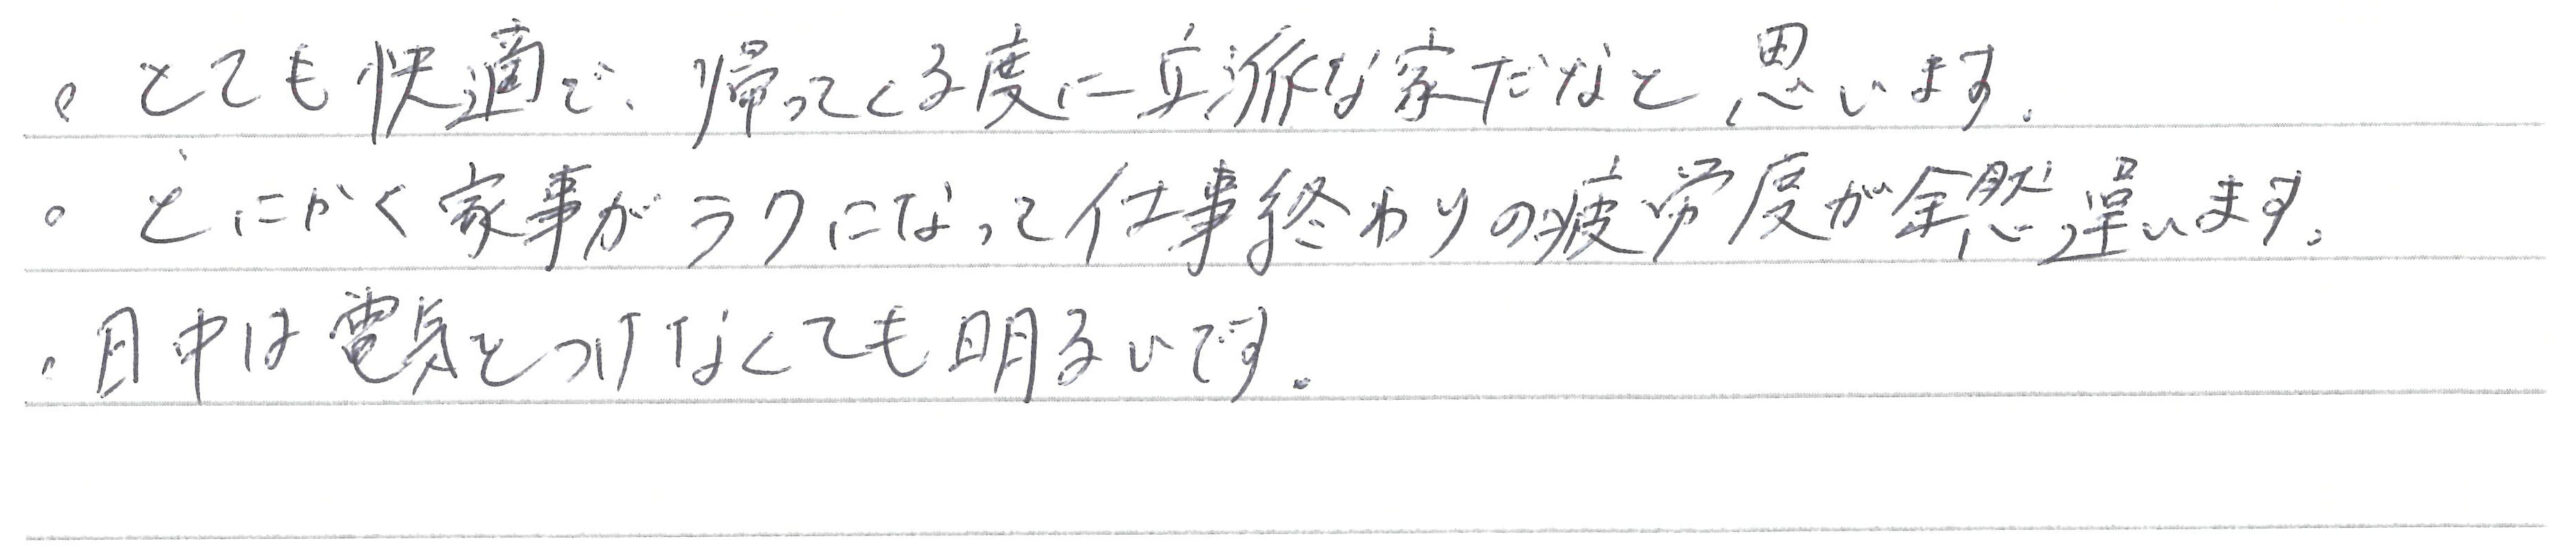 。とても快適で、帰ってくる度に立派な家だなと思います。
。とにかく家事がラクになって仕事終わりの疲労度が全然違います。
・日中は電気をつけなくても明るいです。